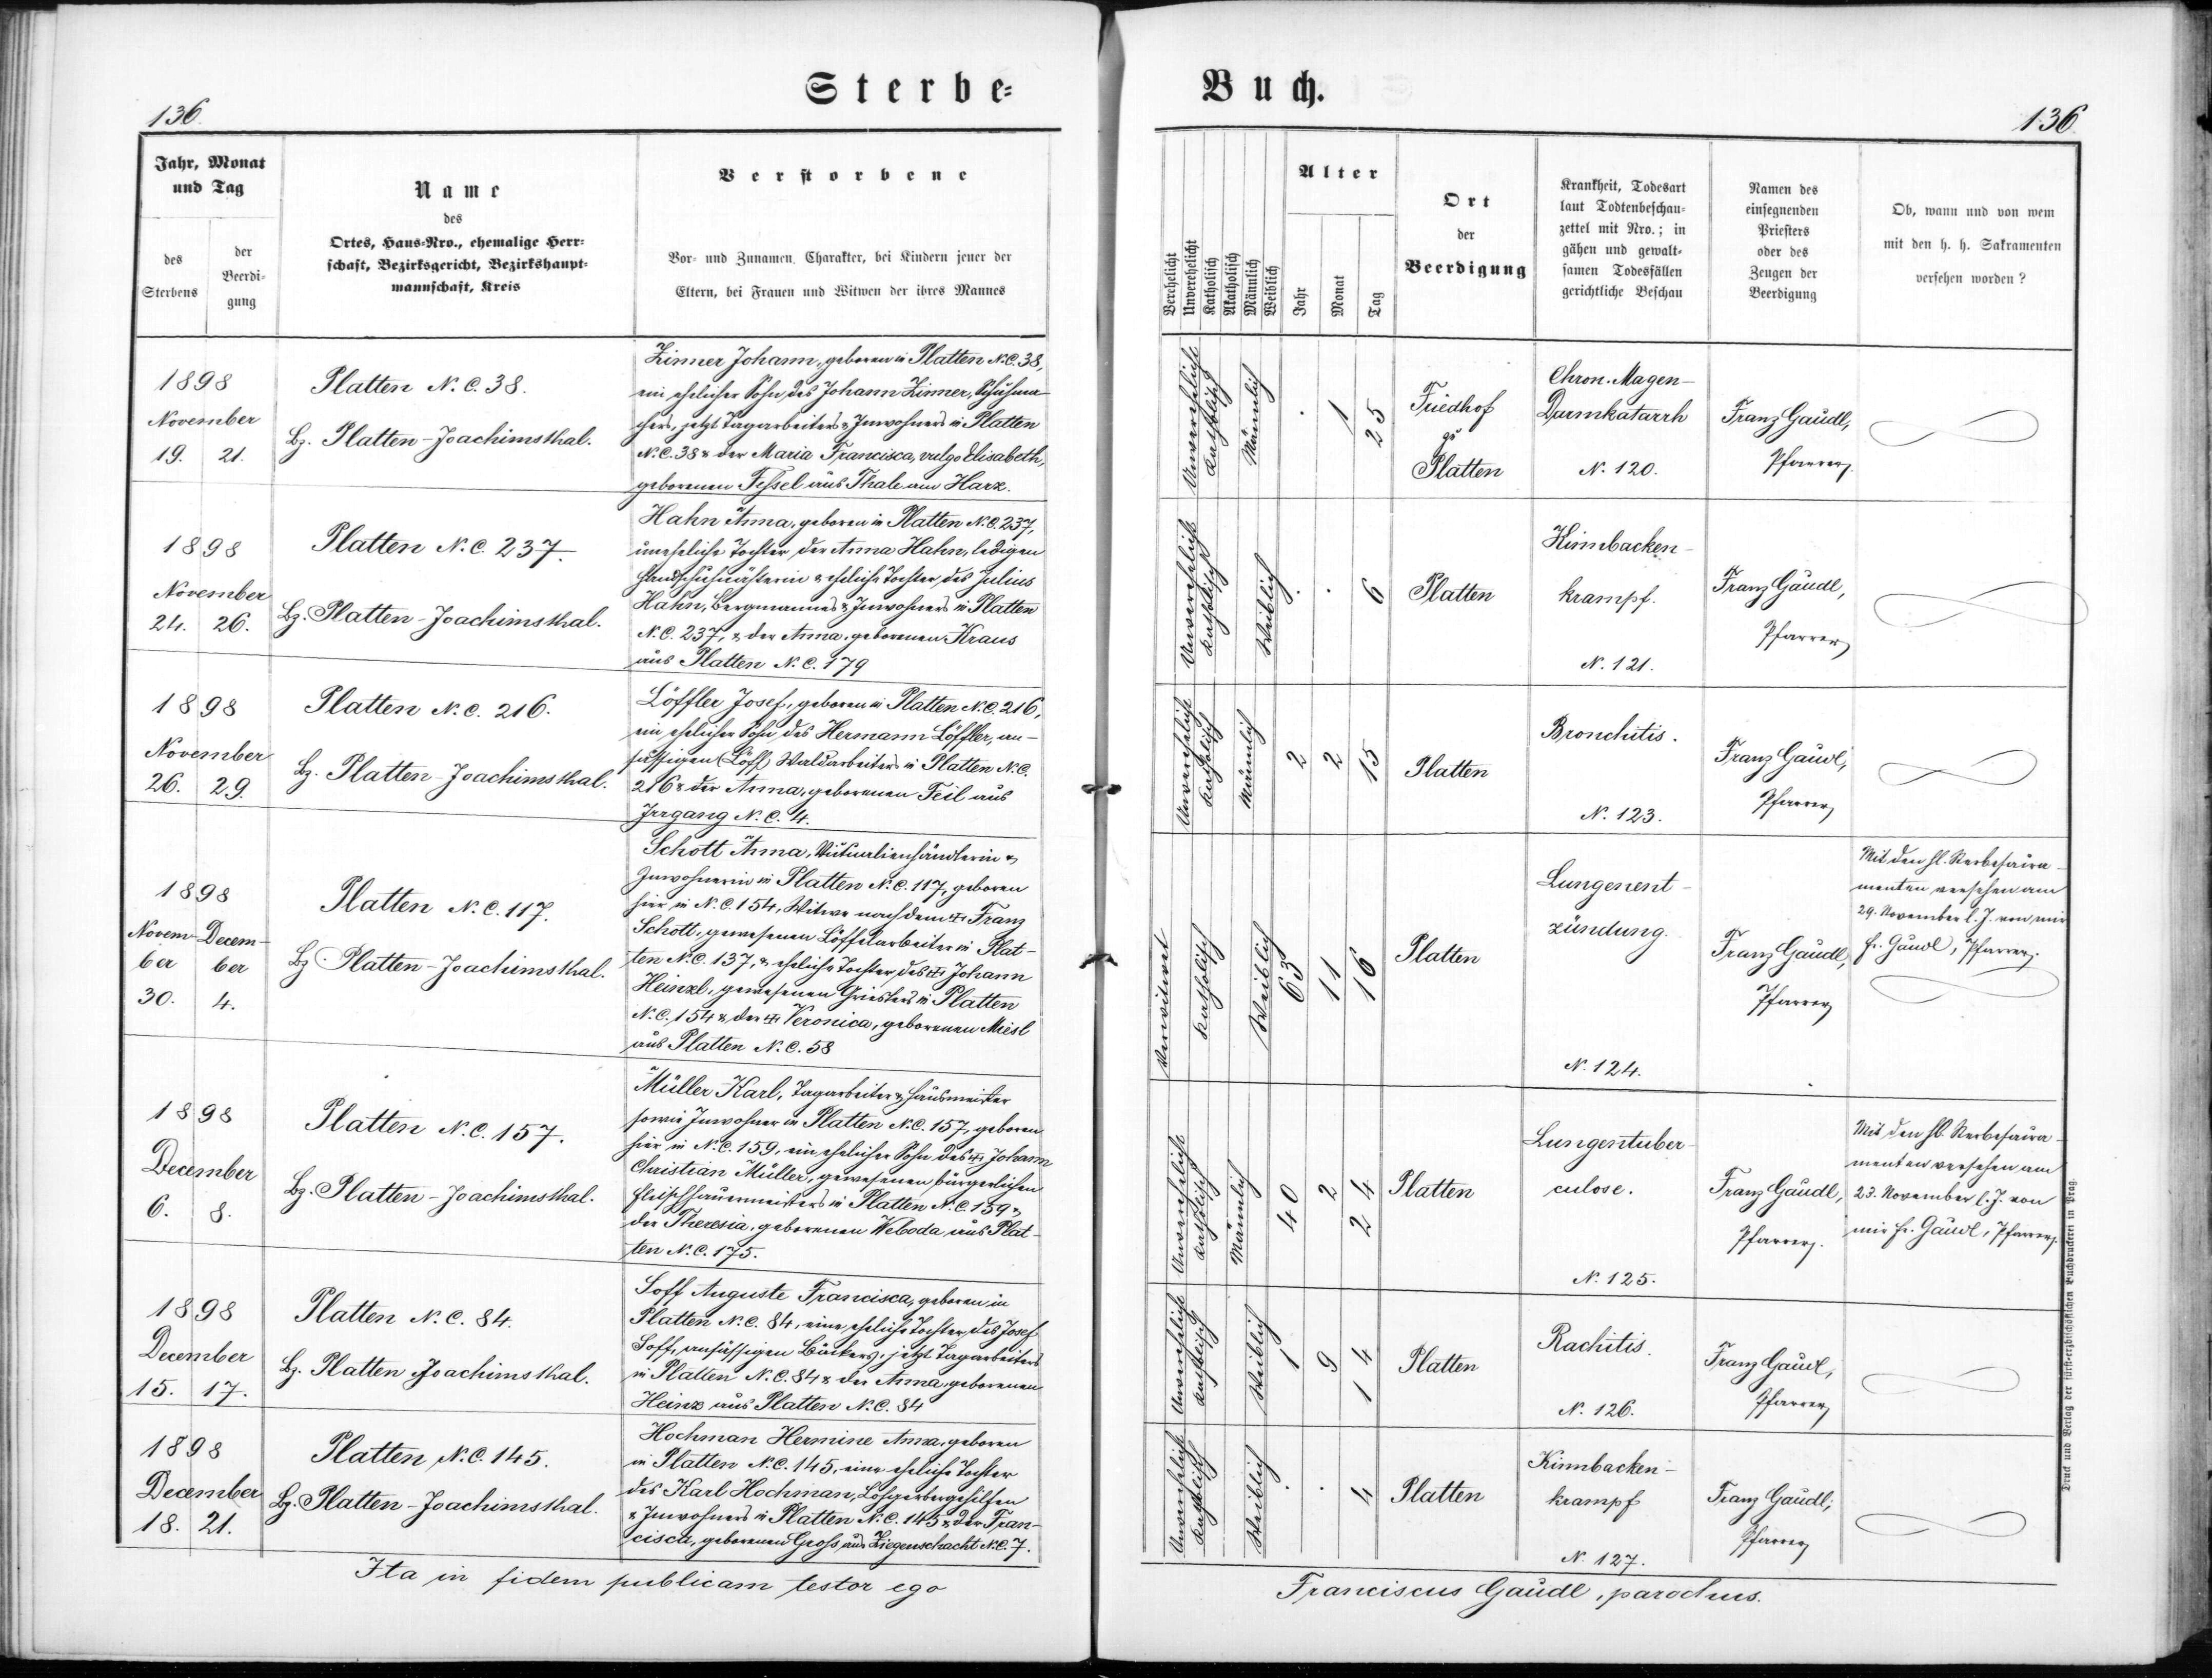 Sterbe-
Buch.
136.
136
Jahr, Monat
und Tag
des
Sterbens
der
Beerdi-
gung
Name
des
Ortes, Haus-Nro., ehemalige Herr-
schaft, Bezirksgericht, Bezirkshaupt-
mannschaft, Kreis
Verstorbene
Vor- und Zunamen, Charakter, bei Kindern jener der
Eltern, bei Frauen und Witwen der ihres Mannes
Verehelicht
Unverehelicht
Katholisch
Akatholisch
Männlich
Weiblich
Alter
Jahr
Monat
Tag
Ort
der
Beerdigung
Krankheit, Todesart
laut Todtenbeschau-
zettel mit Nro.; in
gähen und gewalt-
samen Todesfällen
gerichtliche Beschau
Namen des
einsegnenden
Priesters
oder des
Zeugen der
Beerdigung
Ob, wann und von wem
mit den h. h. Sakramenten
versehen worden?
1898
November
19. 21.
Platten N.C. 38.
Bz. Platten-Joachimsthal.
Zinner Johann, geboren in Platten N.C. 38,
ein ehelicher Sohn des Johann Zinner, Schuhma-
chers, jetzt Tagarbeiters & Inwohners in Platten
N.C. 38 & der Maria Francisca, vulgo Elisabeth,
geborenen Fessel aus Thale am Harz.
Unverehelicht
Katholisch
Männlich
. 1 25
Friedhof
zu
Platten
Chron. Magen-
Darmkatarrh
N. 120.
Franz Gaudl,
Pfarrer.
1898
November
24. 26.
Platten N.C. 237.
Bz. Platten-Joachimsthal.
Hahn Anna, geboren in Platten N.C. 237,
uneheliche Tochter der Anna Hahn, ledigen
Handschuhnähterin & eheliche Tochter des Julius
Hahn, Bergmannes & Inwohners in Platten
N.C. 237, & der Anna, geborenen Kraus
aus Platten N.C. 179
Unverehelicht
Katholisch
Weiblich
. . 6
Platten
Kinnbacken-
krampf.
N. 121.
Franz Gaudl,
Pfarrer
1898
November
26. 29.
Platten N.C. 216.
Bz. Platten-Joachimsthal.
Löffler Josef, geboren in Platten N.C. 216,
ein ehelicher Sohn des Hermann Löffler, an-
sässigen (Löff) Waldarbeiters in Platten N.C.
216 & der Anna, geborenen Feil aus
Irrgang N.C. 4.
Unverehelicht
Katholisch
Männlich
2 2 15
Platten
Bronchitis.
N. 123.
Franz Gaudl,
Pfarrer
1898
Novem- Decem-
ber ber
30. 4.
Platten N.C. 117.
Bz. Platten-Joachimsthal.
Schott Anna, Victualienhändlerin &
Inwohnerin in Platten N.C. 117, geboren
hier in N.C. 154, Witwe nach dem † Franz
Schott, gewesenen Löffelarbeiter in Plat-
ten N.C. 137, & eheliche Tochter des † Johann
Heinzl, gewesenen Grieslers in Platten
N.C. 154 & der † Veronica, geborenen Miesl
aus Platten N.C. 58
Verwitwet
Katholisch
Weiblich
63 11 16
Platten
Lungenent-
zündung.
N. 124.
Franz Gaudl,
Pfarrer
Mit den hl. Sterbesacra-
menten versehen am
29. November l. J. von mir
Fr. Gaudl, Pfarrer.
1898
December
6. 8.
Platten N.C. 157.
Bz. Platten-Joachimsthal.
Müller Karl, Tagarbeiter & Hausmeister
sowie Inwohner in Platten N.C. 157, geboren
hier in N.C. 159, ein ehelicher Sohn des † Johann
Christian Müller, gewesenen bürgerlichen
Fleischhauermeisters in Platten N.C. 159 &
der Theresia, geborenen Weboda aus Plat-
ten N.C. 175.
Unverehelicht
Katholisch
Männlich
40 2 24
Platten
Lungentuber-
culose.
N. 125.
Franz Gaudl,
Pfarrer.
Mit den hl. Sterbesacra-
menten versehen am
23. November l. J. von
mir Fr. Gaudl, Pfarrer.
1898
December
15. 17.
Platten N.C. 84.
Bz. Platten Joachimsthal.
Soff Auguste Francisca, geboren in
Platten N.C. 84, eine eheliche Tochter des Josef
Soff, ansässigen Bäckers, jetzt Tagarbeiters
in Platten N.C. 84 & der Anna, geborenen
Heinz aus Platten N.C. 84
Unverehelicht
Katholisch
Weiblich
1 9 14
Platten
Rachitis.
N. 126.
Franz Gaudl,
Pfarrer
1898
December
18. 21.
Platten N.C. 145.
Bz. Platten-Joachimsthal.
Hochman Hermine Anna, geboren
in Platten N.C. 145, eine eheliche Tochter
des Karl Hochman, Lohgerbergehilfen
& Inwohners in Platten N.C. 145 & der Fran-
cisca, geborenen Gross aus Ziegenschacht N.C. 7.
Unverehelicht
Katholisch
Weiblich
. . 4
Platten
Kinnbacken-
krampf
N. 127.
Franz Gaudl,
Pfarrer
Ita in fidem publicam testor ego
Franciscus Gaudl, parochus.
Druck und Verlag der fürst-erzbischöflichen Buchdruckerei in Prag.